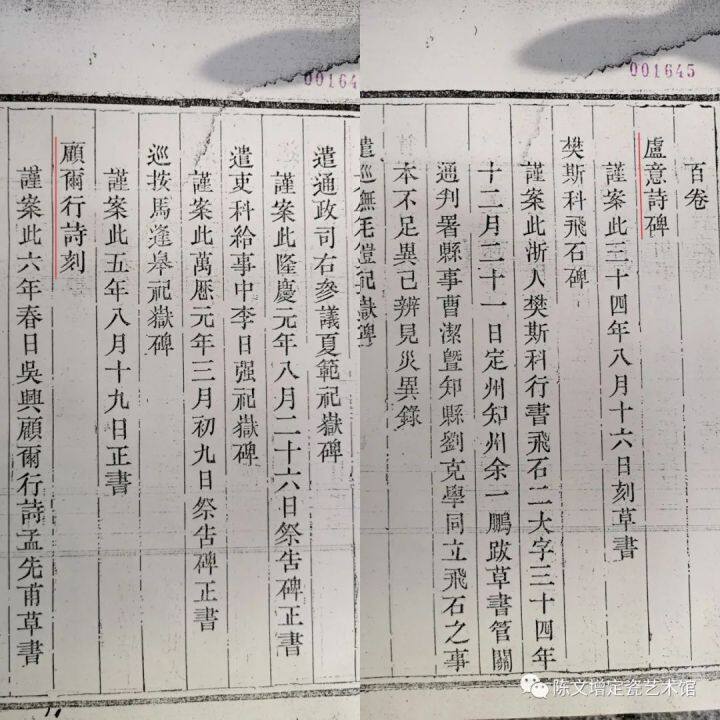 001645
百卷
盧意詩碑
謹案此三十四年八月十六日刻草書
樊斯科飛石碑
謹案此浙人樊斯科行書飛石二大字三十四年
十二月二十一日定州知州余一鵬跋草書管關
通判署縣事曹潔暨知縣劉克學同立飛石之事
本不足異已辨見災異錄
遣巡撫毛愷祀嶽碑
00164
遣通政司右參議夏範祀嶽碑
謹案此隆慶元年八月二十六日祭告碑正書
遣吏科給事中李日强祀嶽碑
謹案此萬厯元年三月初九日祭告碑正書
巡按馬逢皋祀嶽碑
謹案此五年八月十九日正書
顧爾行詩刻
謹案此六年春日吳興顧爾行詩孟先甫草書
陈文增定瓷艺术馆